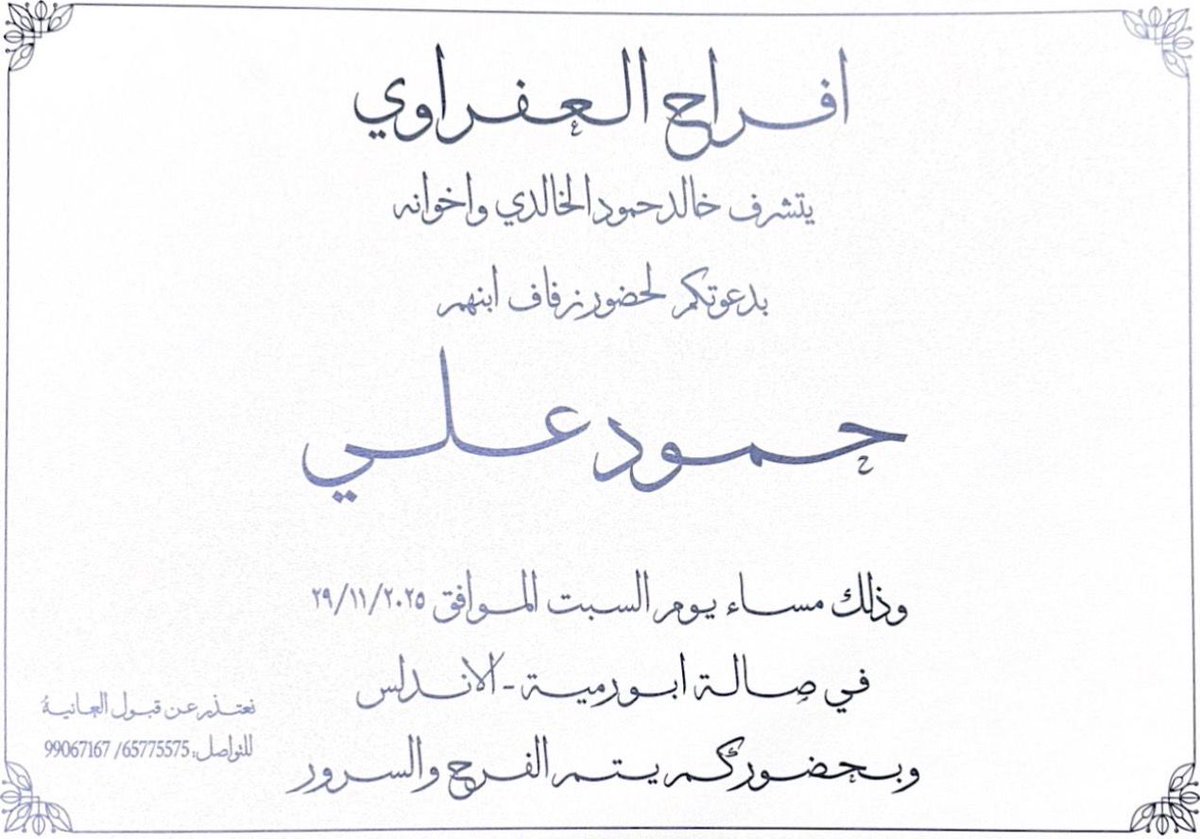 افراح العفراوي
يتشرف خالد حمود الخالدي واخوانه
بدعوتكم لحضور زفاف ابنهم
حمود علي
وذلك مساء يوم السبت الموافق ٢٩/١١/٢٠٢٥
في صالة ابورمية - الاندلس
وبحضوركم يتم الفرح والسرور
نعتذر عن قبول العانية
للتواصل: 65775575/ 99067167